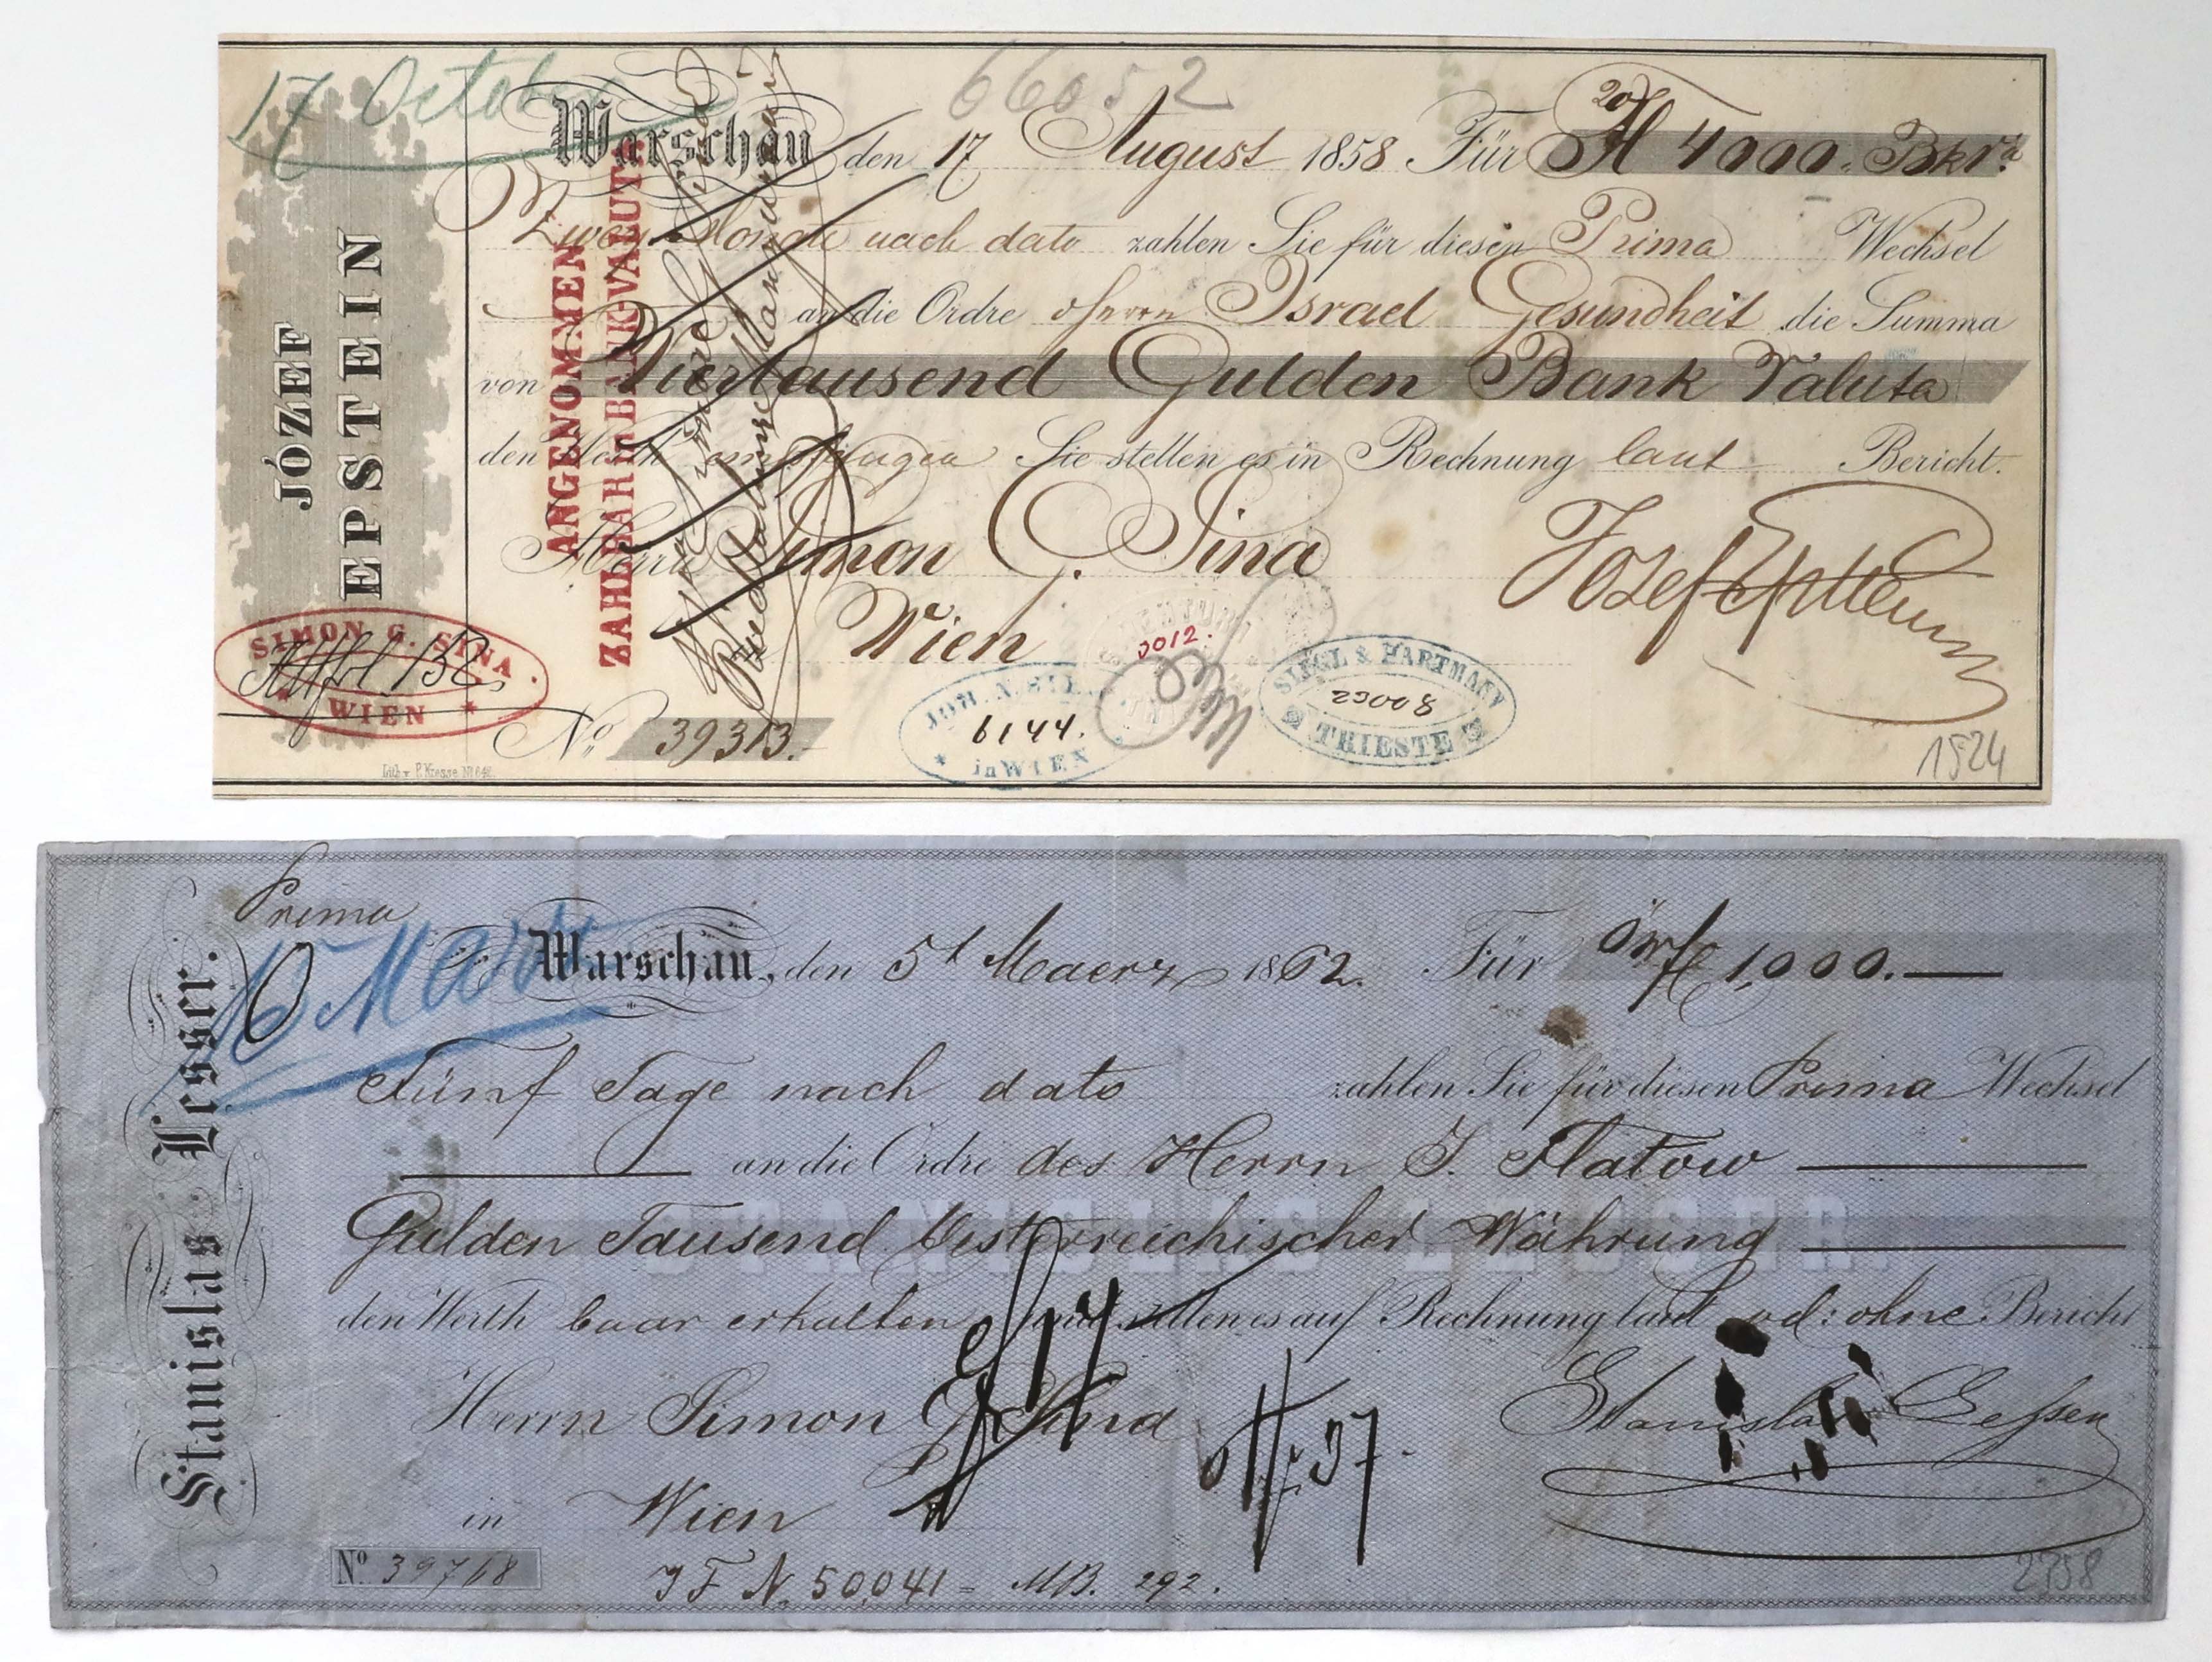 17 October
66052
Warschau den 17 August 1858 Für fl 4000. Bkv.
Zwey Monate nach dato zahlen Sie für diesen Prima Wechsel
an die Ordre Herrn Israel Gesundheit die Summa
von Viertausend Gulden Bank Valuta
den Werth empfangen Sie stellen es in Rechnung laut Bericht.
Herrn Simon G. Sina
Wien
Jozef Epstein
JÓZEF
EPSTEIN
ANGENOMMEN
ZAHLBAR IN BANK-VALUTA
SIMON G. SINA
WIEN
No 39313.
JOH. N.
6144.
in WIEN
3012.
SIEGL & HARTMANN
23008
TRIESTE
1524
Prima
10 Marz
Warschau, den 5t Maerz 1862. Für öW fl 1,000.
Fünf Tage nach dato zahlen Sie für diesen Prima Wechsel
an die Ordre des Herrn S. Flatow
Gulden Tausend Oesterreichischer Währung
STANISLAS LESSER.
den Werth baar erhalten und stellen es auf Rechnung laut od: ohne Bericht
Herrn Simon G. Sina
in Wien
Stanislas Lesser
Stanislas Lesser.
No. 39768
J F N. 50,041 = MB. 292.
2358